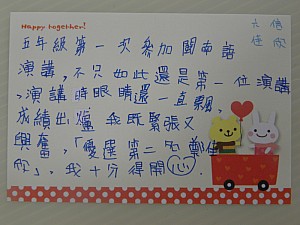 Happy together!
六信
佳欣
五年級第一次參加閩南語
演講,不只如此還是第一位演講
,演講時眼睛還一直飄,
成績出爐 我既緊張又
興奮,「優選第二名鄭佳
欣」,我十分得開心.